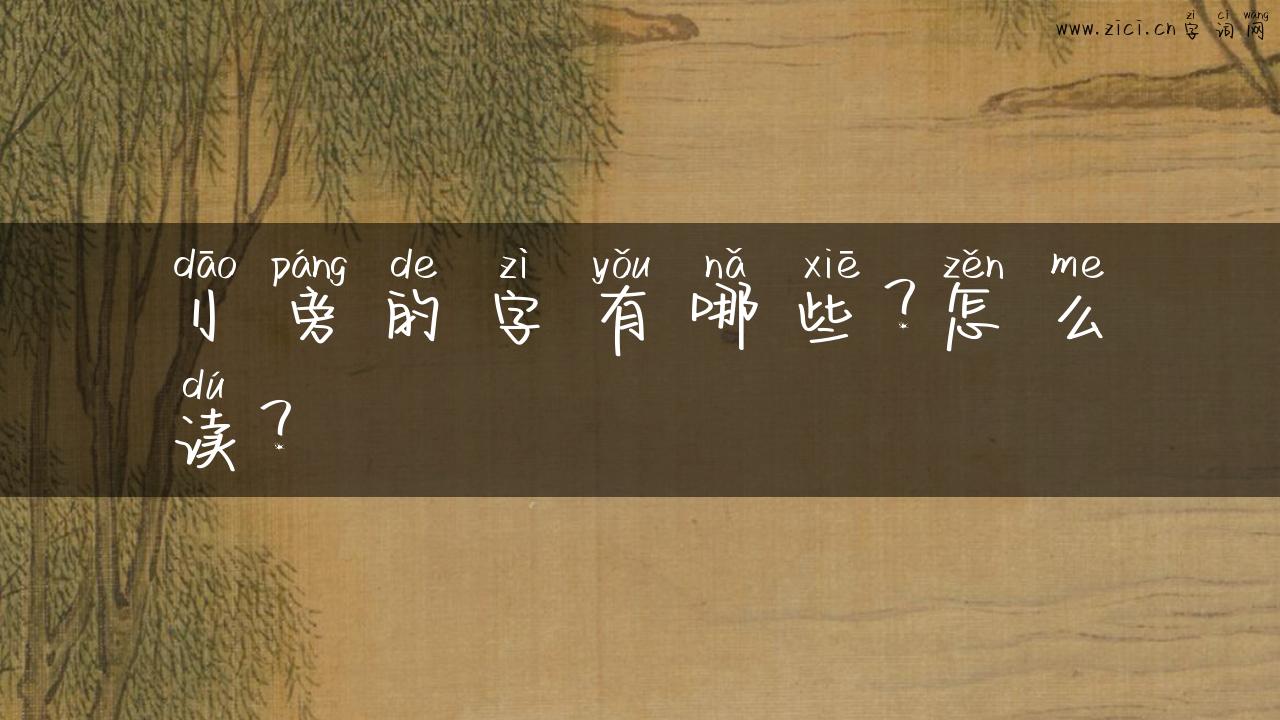 zì cí wǎng
www.zici.cn 字 词 网
dāo páng de zì yǒu nǎ xiē zěn me
刂 旁 的 字 有 哪 些 ? 怎 么
dú
读 ?